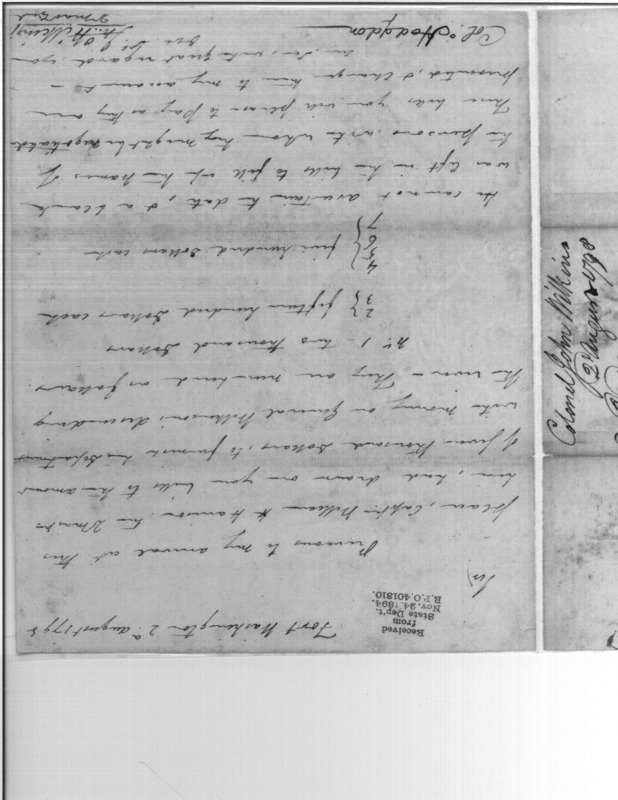 Fort Washington 2d. August 1798
Received
from
State Dep't.
Nov. 24, 1894.
R.P.O. 401810.
Sir,
Previous to my arrival at this
place, Captn. William H. Harrison the 2 Master
here, had drawn on you bills to the amount
of Seven thousand dollars, to furnish his department
with money, on General Wilkinson's descending
the river – They are numbered as follows.
No. 1 – two thousand dollars
2
3 } fifteen hundred dollars each
4
5
6
7 } five hundred dollars each
He cannot ascertain the date, & a blank
was left in the bills to fill up the names of
the persons, with whom they might be negotiated
These bills you will please to pay as they are
presented, & charge them to my account –
am, Sir, with great regard, your
Jno. Wilkins
Col: Hodgdon
Colonel John Wilkins
2d August 1798